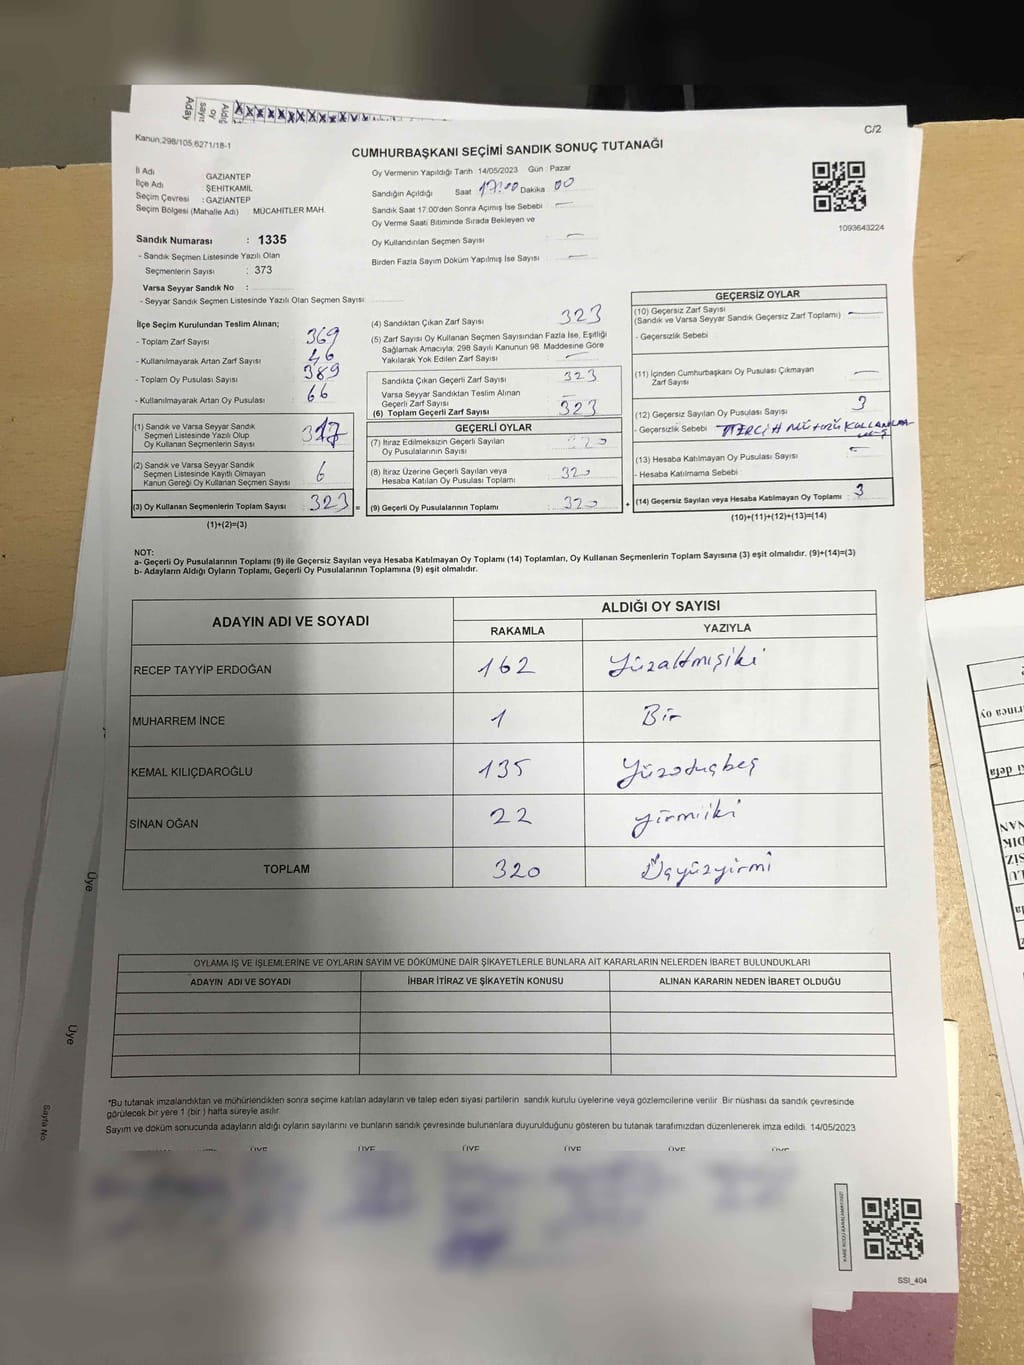 Adayı
Aldığı
oy
sayıs
Kanun,298/105,6271/18-1
C/2
CUMHURBAŞKANI SEÇİMİ SANDIK SONUÇ TUTANAĞI
İl Adı GAZİANTEP
İlçe Adı ŞEHİTKAMİL
Seçim Çevresi : GAZİANTEP
Seçim Bölgesi (Mahalle Adı) MÜCAHİTLER MAH.
Sandık Numarası : 1335
- Sandık Seçmen Listesinde Yazılı Olan
Seçmenlerin Sayısı : 373
Varsa Seyyar Sandık No :
- Seyyar Sandık Seçmen Listesinde Yazılı Olan Seçmen Sayısı:
Oy Vermenin Yapıldığı Tarih :14/05/2023 Gün : Pazar
Sandığın Açıldığı Saat 17:00 Dakika 00
Sandık Saat 17:00'den Sonra Açılmış İse Sebebi : —
Oy Verme Saati Bitiminde Sırada Bekleyen ve
Oy Kullandırılan Seçmen Sayısı : —
Birden Fazla Sayım Döküm Yapılmış İse Sayısı : —
1093643224
İlçe Seçim Kurulundan Teslim Alınan;
- Toplam Zarf Sayısı 369
- Kullanılmayarak Artan Zarf Sayısı 46
- Toplam Oy Pusulası Sayısı 389
- Kullanılmayarak Artan Oy Pusulası : 66
(1) Sandık ve Varsa Seyyar Sandık
Seçmen Listesinde Yazılı Olup
Oy Kullanan Seçmenlerin Sayısı 317
(2) Sandık ve Varsa Seyyar Sandık
Seçmen Listesinde Kayıtlı Olmayan
Kanun Gereği Oy Kullanan Seçmen Sayısı 6
(3) Oy Kullanan Seçmenlerin Toplam Sayısı 323 =
(1)+(2)=(3)
(4) Sandıktan Çıkan Zarf Sayısı 323
(5) Zarf Sayısı Oy Kullanan Seçmen Sayısından Fazla İse, Eşitliği
Sağlamak Amacıyla; 298 Sayılı Kanunun 98. Maddesine Göre
Yakılarak Yok Edilen Zarf Sayısı : —
Sandıkta Çıkan Geçerli Zarf Sayısı : 323
Varsa Seyyar Sandıktan Teslim Alınan
Geçerli Zarf Sayısı : —
(6) Toplam Geçerli Zarf Sayısı : 323
GEÇERLİ OYLAR
(7) İtiraz Edilmeksizin Geçerli Sayılan
Oy Pusulalarının Sayısı : 320
(8) İtiraz Üzerine Geçerli Sayılan veya
Hesaba Katılan Oy Pusulası Toplamı : 320
(9) Geçerli Oy Pusulalarının Toplamı : 320 +
GEÇERSİZ OYLAR
(10) Geçersiz Zarf Sayısı
(Sandık ve Varsa Seyyar Sandık Geçersiz Zarf Toplamı) : —
- Geçersizlik Sebebi
(11) İçinden Cumhurbaşkanı Oy Pusulası Çıkmayan
Zarf Sayısı —
(12) Geçersiz Sayılan Oy Pusulası Sayısı : 3
- Geçersizlik Sebebi TERCİH MÜHÜRÜ
(13) Hesaba Katılmayan Oy Pusulası Sayısı : —
- Hesaba Katılmama Sebebi
(14) Geçersiz Sayılan veya Hesaba Katılmayan Oy Toplamı : 3
(10)+(11)+(12)+(13)=(14)
NOT:
a- Geçerli Oy Pusulalarının Toplamı (9) ile Geçersiz Sayılan veya Hesaba Katılmayan Oy Toplamı (14) Toplamları, Oy Kullanan Seçmenlerin Toplam Sayısına (3) eşit olmalıdır. (9)+(14)=(3)
b- Adayların Aldığı Oyların Toplamı, Geçerli Oy Pusulalarının Toplamına (9) eşit olmalıdır.
ADAYIN ADI VE SOYADI ALDIĞI OY SAYISI
RAKAMLA YAZIYLA
RECEP TAYYİP ERDOĞAN 162 Yüzaltmışiki
MUHARREM İNCE 1 Bir
KEMAL KILIÇDAROĞLU 135 Yüzotuzbeş
SİNAN OĞAN 22 yirmiiki
TOPLAM 320 Üçyüzyirmi
OYLAMA İŞ VE İŞLEMLERİNE VE OYLARIN SAYIM VE DÖKÜMÜNE DAİR ŞİKAYETLERLE BUNLARA AİT KARARLARIN NELERDEN İBARET BULUNDUKLARI
ADAYIN ADI VE SOYADI İHBAR İTİRAZ VE ŞİKAYETİN KONUSU ALINAN KARARIN NEDEN İBARET OLDUĞU
*Bu tutanak imzalandıktan ve mühürlendikten sonra seçime katılan adayların ve talep eden siyasi partilerin sandık kurulu üyelerine veya gözlemcilerine verilir. Bir nüshası da sandık çevresinde
görülecek bir yere 1 (bir ) hafta süreyle asılır.
Sayım ve döküm sonucunda adayların aldığı oyların sayılarını ve bunların sandık çevresinde bulunanlara duyurulduğunu gösteren bu tutanak tarafımızdan düzenlenerek imza edildi. 14/05/2023
ÜYE ÜYE ÜYE ÜYE ÜYE ÜYE
SSI_404
Üye
Üye
Sayfa No: